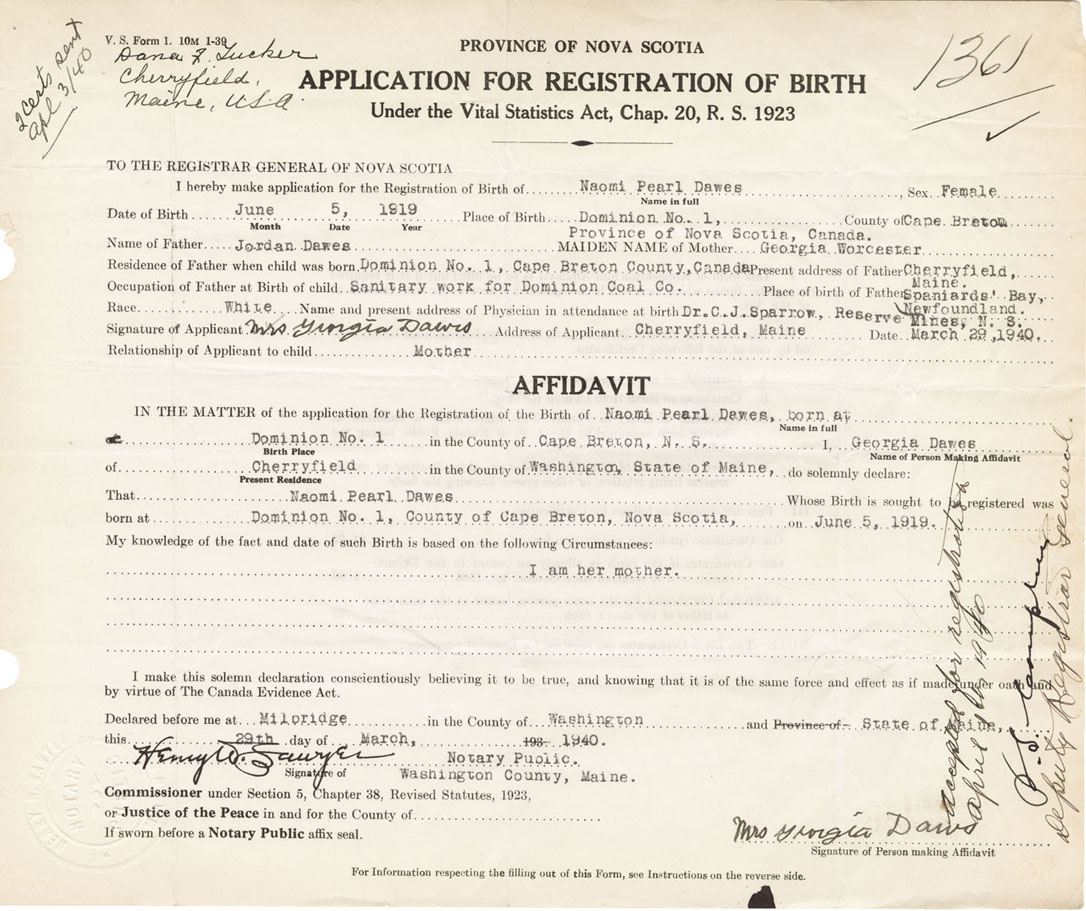 2 Certs sent
Apl 3/40
V. S. Form 1. 10M 1-39
Dana F. Tucker
Cherryfield,
Maine, U.S.A.
PROVINCE OF NOVA SCOTIA
1361
APPLICATION FOR REGISTRATION OF BIRTH
Under the Vital Statistics Act, Chap. 20, R. S. 1923
TO THE REGISTRAR GENERAL OF NOVA SCOTIA
I hereby make application for the Registration of Birth of Naomi Pearl Dawes, Sex Female
Name in full
Date of Birth June 5, 1919 Place of Birth Dominion No. 1, County of Cape Breton
Month Date Year Province of Nova Scotia, Canada.
Name of Father Jordan Dawes MAIDEN NAME of Mother Georgia Worcester
Residence of Father when child was born Dominion No. 1, Cape Breton County, Canada Present address of Father Cherryfield,
Maine.
Occupation of Father at Birth of child Sanitary work for Dominion Coal Co. Place of birth of Father Spaniards' Bay,
Newfoundland.
Race White Name and present address of Physician in attendance at birth Dr. C. J. Sparrow, Reserve Mines, N. S.
Signature of Applicant Mrs Georgia Dawes Address of Applicant Cherryfield, Maine Date March 29, 1940.
Relationship of Applicant to child Mother
AFFIDAVIT
IN THE MATTER of the application for the Registration of the Birth of Naomi Pearl Dawes, born at
Name in full
Dominion No. 1 in the County of Cape Breton, N. S. I, Georgia Dawes
Birth Place Name of Person Making Affidavit
of Cherryfield in the County of Washington, State of Maine, do solemnly declare:
Present Residence
That Naomi Pearl Dawes Whose Birth is sought to be registered was
born at Dominion No. 1, County of Cape Breton, Nova Scotia, on June 5, 1919.
My knowledge of the fact and date of such Birth is based on the following Circumstances:
I am her mother.
I make this solemn declaration conscientiously believing it to be true, and knowing that it is of the same force and effect as if made under oath and
by virtue of The Canada Evidence Act.
Declared before me at Milbridge in the County of Washington and Province of State of Maine,
this 29th day of March, 193 1940.
Henry W. Sawyer Notary Public.
Signature of Washington County, Maine.
Commissioner under Section 5, Chapter 38, Revised Statutes, 1923,
or Justice of the Peace in and for the County of
If sworn before a Notary Public affix seal.
Mrs Georgia Dawes
Signature of Person making Affidavit
For Information respecting the filling out of this Form, see Instructions on the reverse side.
accepted for registration
april 1940
Deputy Registrar General.